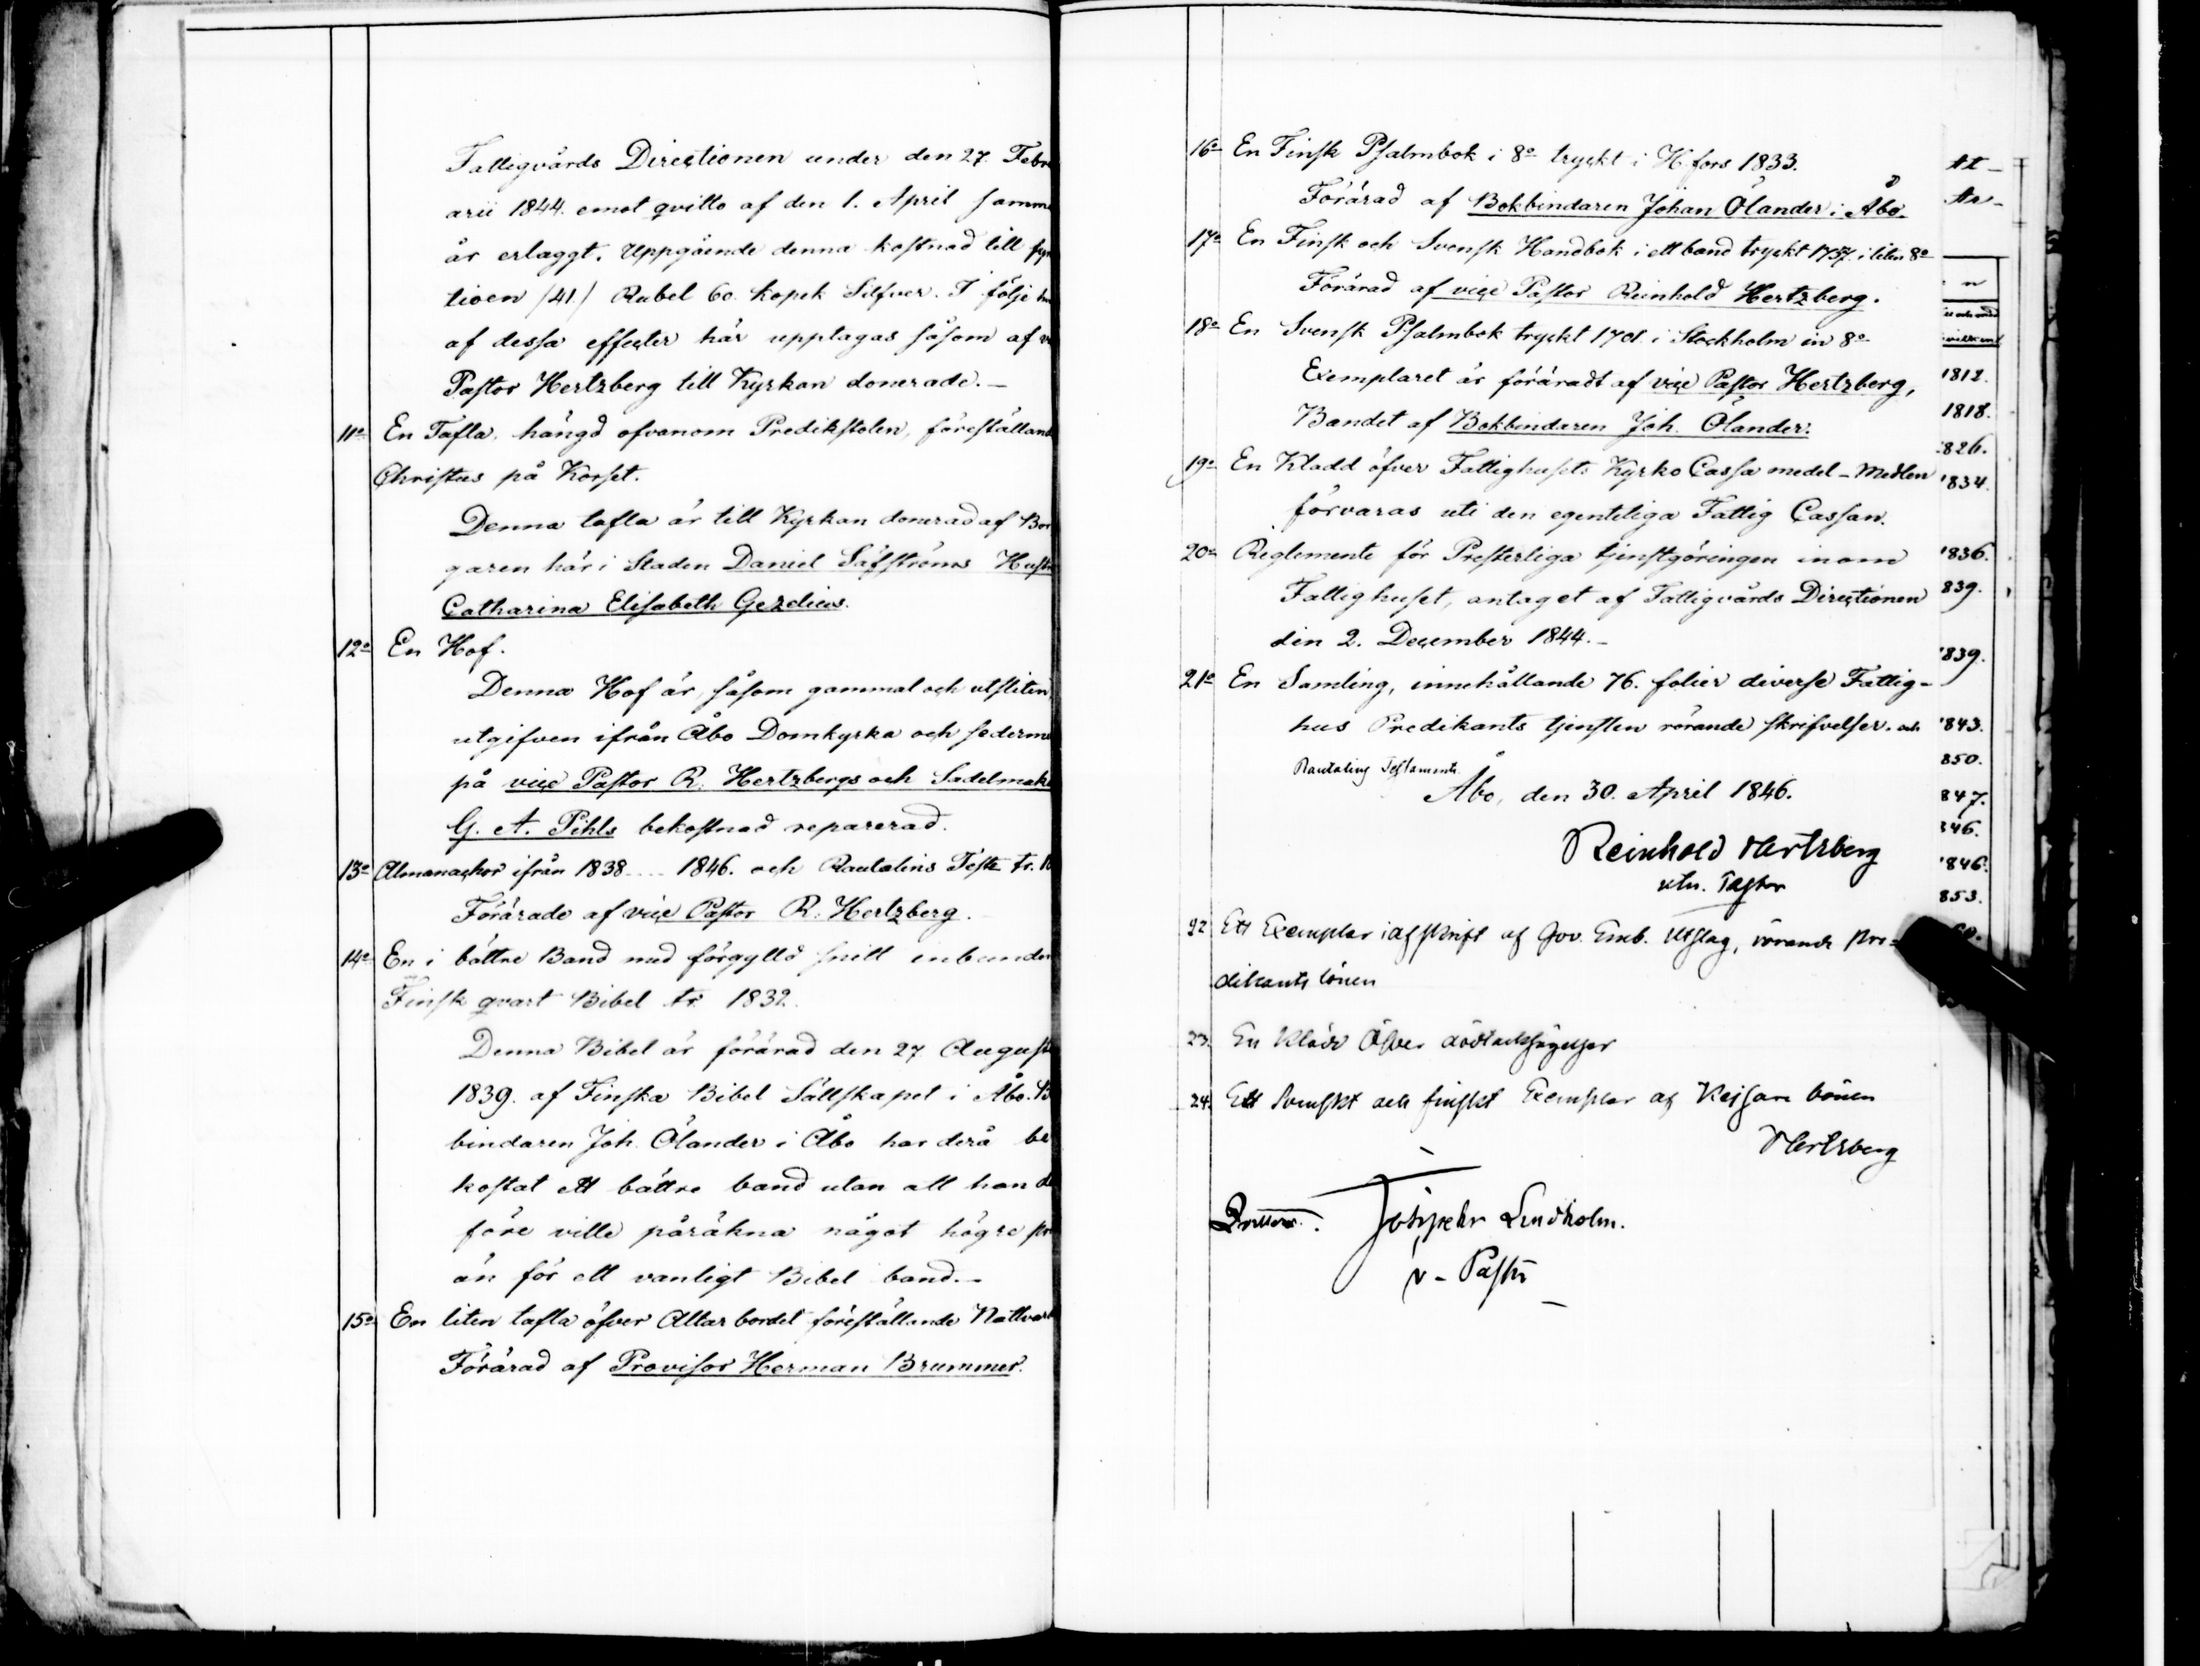 Fattigvårds Directionen under den 27. Febru
arii 1844. emot qvitto af den 1. April samma
år erlaggt. Uppgående denna kostnad till fyr
tioen /41/ Rubel 60. kopek Silfver. I följe
af dessa effecter här upptagas såsom af
Pastor Hertzberg till Kyrkan donerade. —
11o En Tafla, hängd ofvanom Predikstolen, föreställand
Christus på Korset.
Denna tafla är till Kyrkan donerad af Bor
garen här i Staden Daniel Säfströms Hustru
Catharina Elisabeth Gezelius.
12o En Hof.
Denna Hof är, såsom gammal och utsliten,
utgifven ifrån Åbo Domkyrka och sederme
på vice Pastor R. Hertzbergs och Sadelmaka
G. A. Pihls bekostnad reparerad.
13o Almanachor ifrån 1838 .... 1846. och Rautalins Test. tr.
Förärade af vice Pastor R. Hertzberg.
14o En i bättre Band med förgylld snitt inbunden
Finsk qvart Bibel tr. 1832.
Denna Bibel är förärad den 27 Augusti
1839. af Finska Bibel Sällskapet i Åbo. B
bindaren Joh. Ölander i Åbo har derå be
kostat ett bättre band utan att han de
före ville påräkna något högre pr
än för ett vanligt Bibel band. —
15o En liten tafla öfver Altar bordet föreställande Nattvard
Förärad af Provisor Herman Brummer.
16o En Finsk Psalmbok i 8o tryckt i H.fors 1833.
Förärad af Bokbindaren Johan Ölander i Åbo.
17o En Finsk och Svensk Handbok i ett band tryckt 1757. i liten 8o
Förärad af vice Pastor Reinhold Hertzberg.
18o En Svensk Psalmbok tryckt 1701. i Stockholm in 8o
Exemplaret är föräradt af vice Pastor Hertzberg,
Bandet af Bokbindaren Joh. Ölander.
19o En Kladd öfver Fattighusets Kyrko Cassa medel – Medlen
förvaras uti den egenteliga Fattig Cassan.
20o Reglemente för Presterliga tjenstgöringen inom
Fattighuset, antaget af Fattigvårds Directionen
den 2. December 1844. –
21o En Samling, innehållande 76. folier diverse Fattig-
hus Predikants tjensten rörande skrifvelser. och
Rautalins Testamente.
Åbo, den 30. April 1846.
Reinhold Hertzberg
utn. Pastor
22 Ett Exemplar i afskrift af Gov. Emb. Utslag, rörande Pre-
dikants lönen
23. En Kladd Öfver
24. Ett Svenskt och finskt Exemplar af Kejsare bönen
Hertzberg
Joseph Lindholm.
v – Pastor
1812.
1818.
826.
1834.
1836.
839.
1839.
1843.
850.
847.
846.
1846.
853.